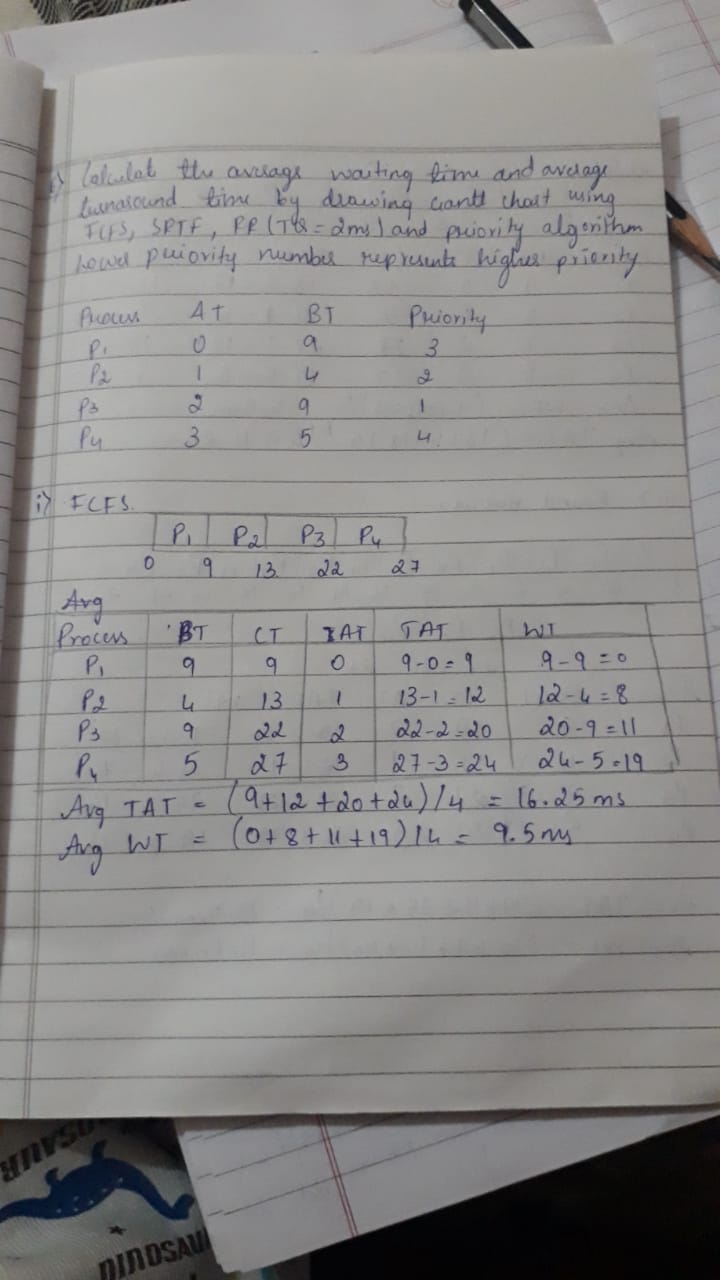 Calculat the average waiting time and average
turnaround time by drawing Gantt chart using
FCFS, SRTF, RR (TQ = 2ms) and priority algorithm
Lower priority number represents higher priority
Process AT BT Priority
P1 0 9 3
P2 1 4 2
P3 2 9 1
P4 3 5 4
i) FCFS.
P1 P2 P3 P4
0 9 13 22 27
Avg
Process BT CT AT TAT WT
P1 9 9 0 9-0=9 9-9=0
P2 4 13 1 13-1=12 12-4=8
P3 9 22 2 22-2=20 20-9=11
P4 5 27 3 27-3=24 24-5=19
Avg TAT = (9+12+20+24)/4 = 16.25ms
Avg WT = (0+8+11+19)/4 = 9.5ms
DINOSAU